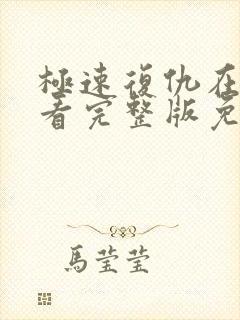 極速復仇在
看完整版免
馬莹莹